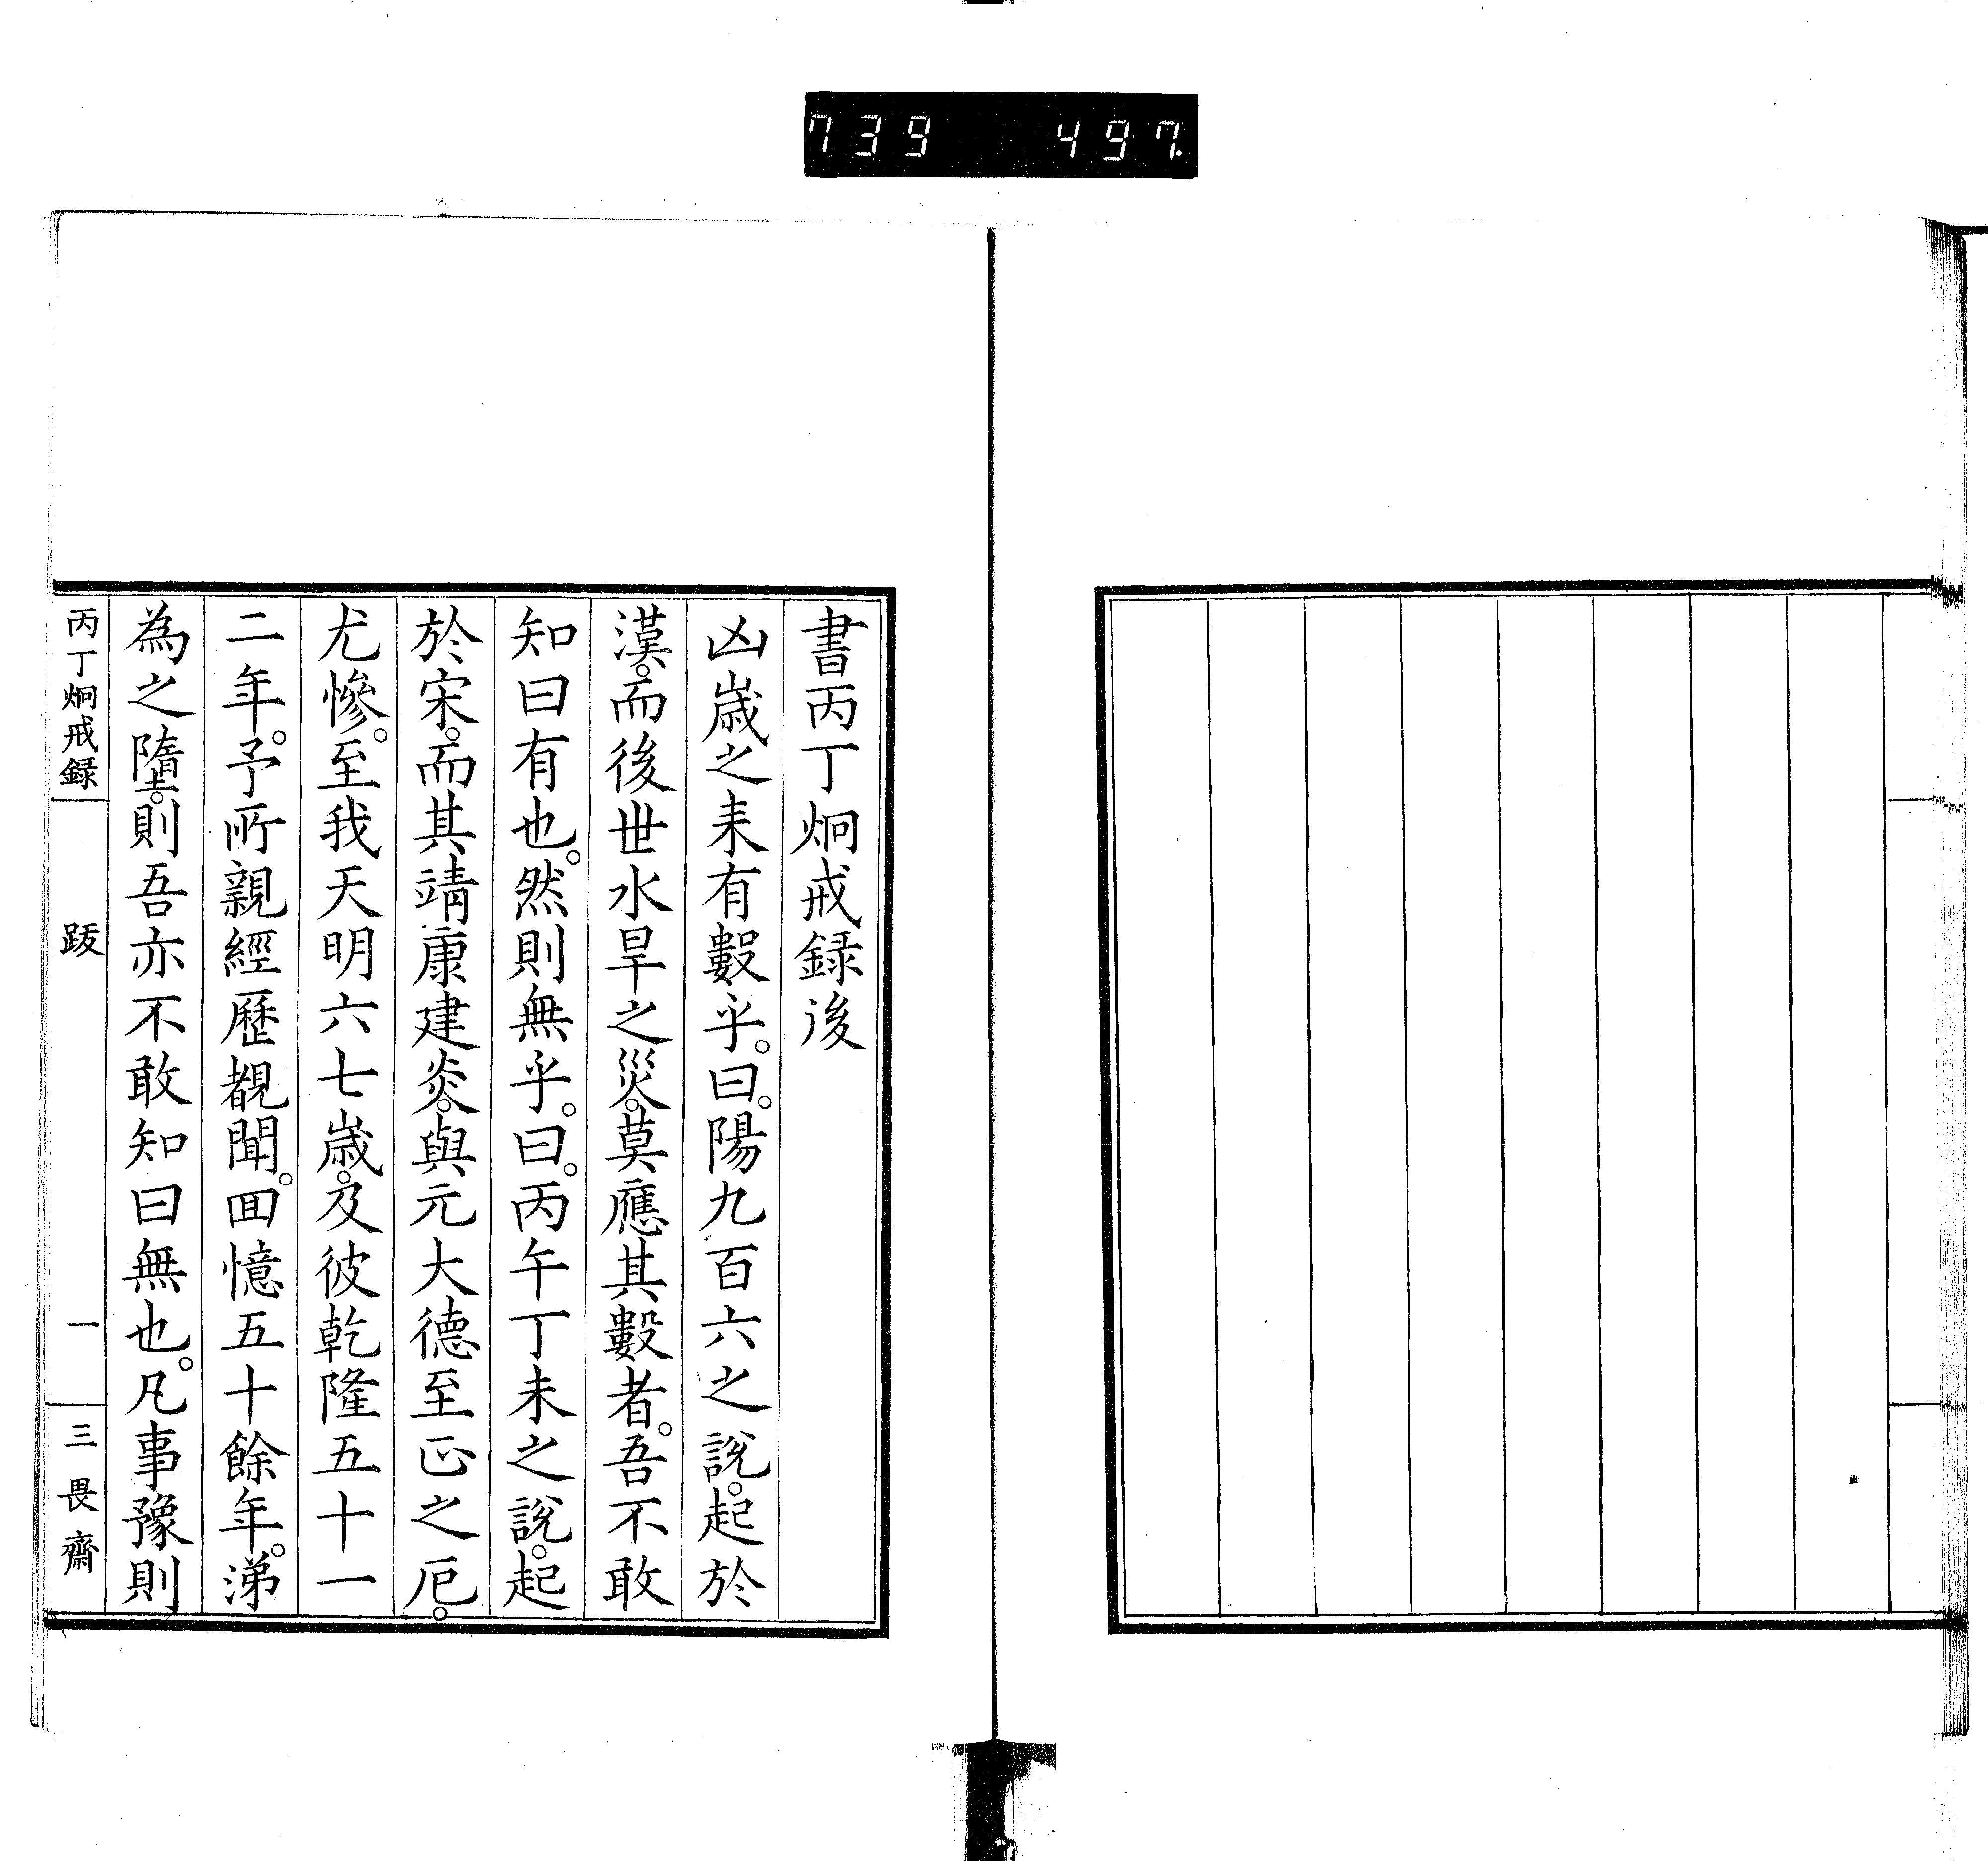 739 497.
書丙丁炯戒録後
凶歳之来有數乎。曰。陽九百六之說。起於
漢。而後世水旱之災。莫應其數者。吾不敢
知曰有也。然則無乎。曰。丙午丁未之說。起
於宋。而其靖康建炎。與元大德至正之厄。
尤慘。至我天明六七歳。及彼乾隆五十一
二年。予所親經歷覩聞。囬憶五十餘年。涕
為之墮。則吾亦不敢知曰無也。凡事豫則
丙丁炯戒録 跋 一 三畏齋